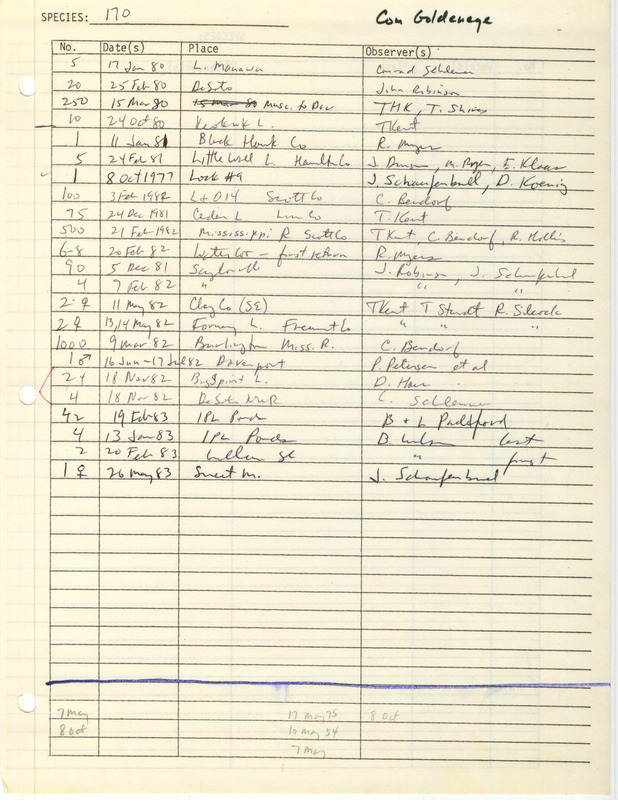 SPECIES: 170 Com Goldeneye
No. Date(s) Place Observer(s)
5 17 Jan 80 L. Manawa Conrad Schlemm
20 25 Feb 80 DeSoto John Robinson
250 15 Mar 80 15 Mar 80 Musc. to Dav THK, T. Shires
10 24 Oct 80 Keokuk L. TKent
1 11 Jan 81 Black Hawk Co R. Myers
5 24 Feb 81 Little Wall L. Hamilt Co J. Dinsmore, M. Bogen, E. Klaas
1 8 Oct 1977 Lock #9 J. Schaufenbuel, D. Koenig
100 3 Feb 1982 L+D14 Scott Co C. Bendorf
75 24 Dec 1981 Cedar L Linn Co T. Kent
500 21 Feb 1982 Mississippi R. Scott Co TKent, C. Bendorf, R. Hollis
6-8 20 Feb 82 Waterloo - first return R. Myers
90 5 Dec 81 Saylorville J. Robinson, J. Schaufenbuel
4 7 Feb 82 " " "
2 ♀ 11 May 82 Clay Co (SE) TKent T Staudt R. Silcock
2 ♀ 13,14 May 82 Forney L. Fremont Co " " "
1000 9 Mar 82 Burlington Miss. R. C. Bendorf
1 ♂ 16 Jun-17 Jul 82 Davenport P. Petersen et al
2+ 18 Nov 82 Big Spirit L. D. Harr
4 18 Nov 82 DeSoto NWR C. Schlemm
42 19 Feb 83 IPL Ponds B + L Padelford
4 13 Jan 83 IPL Ponds B. Wilson last
2 20 Feb 83 " first
1 ♀ 26 May 83 Sweet M. J. Schaufenbuel
7 May 17 May 75 8 Oct
8 Oct 10 May 54
7 May